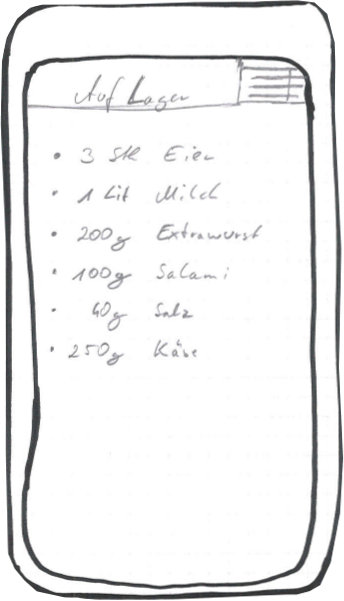 Auf Lager
• 3 Stk Eier
• 1 Lit Milch
• 200g Extrawurst
• 100g Salami
• 40g Salz
• 250g Käse